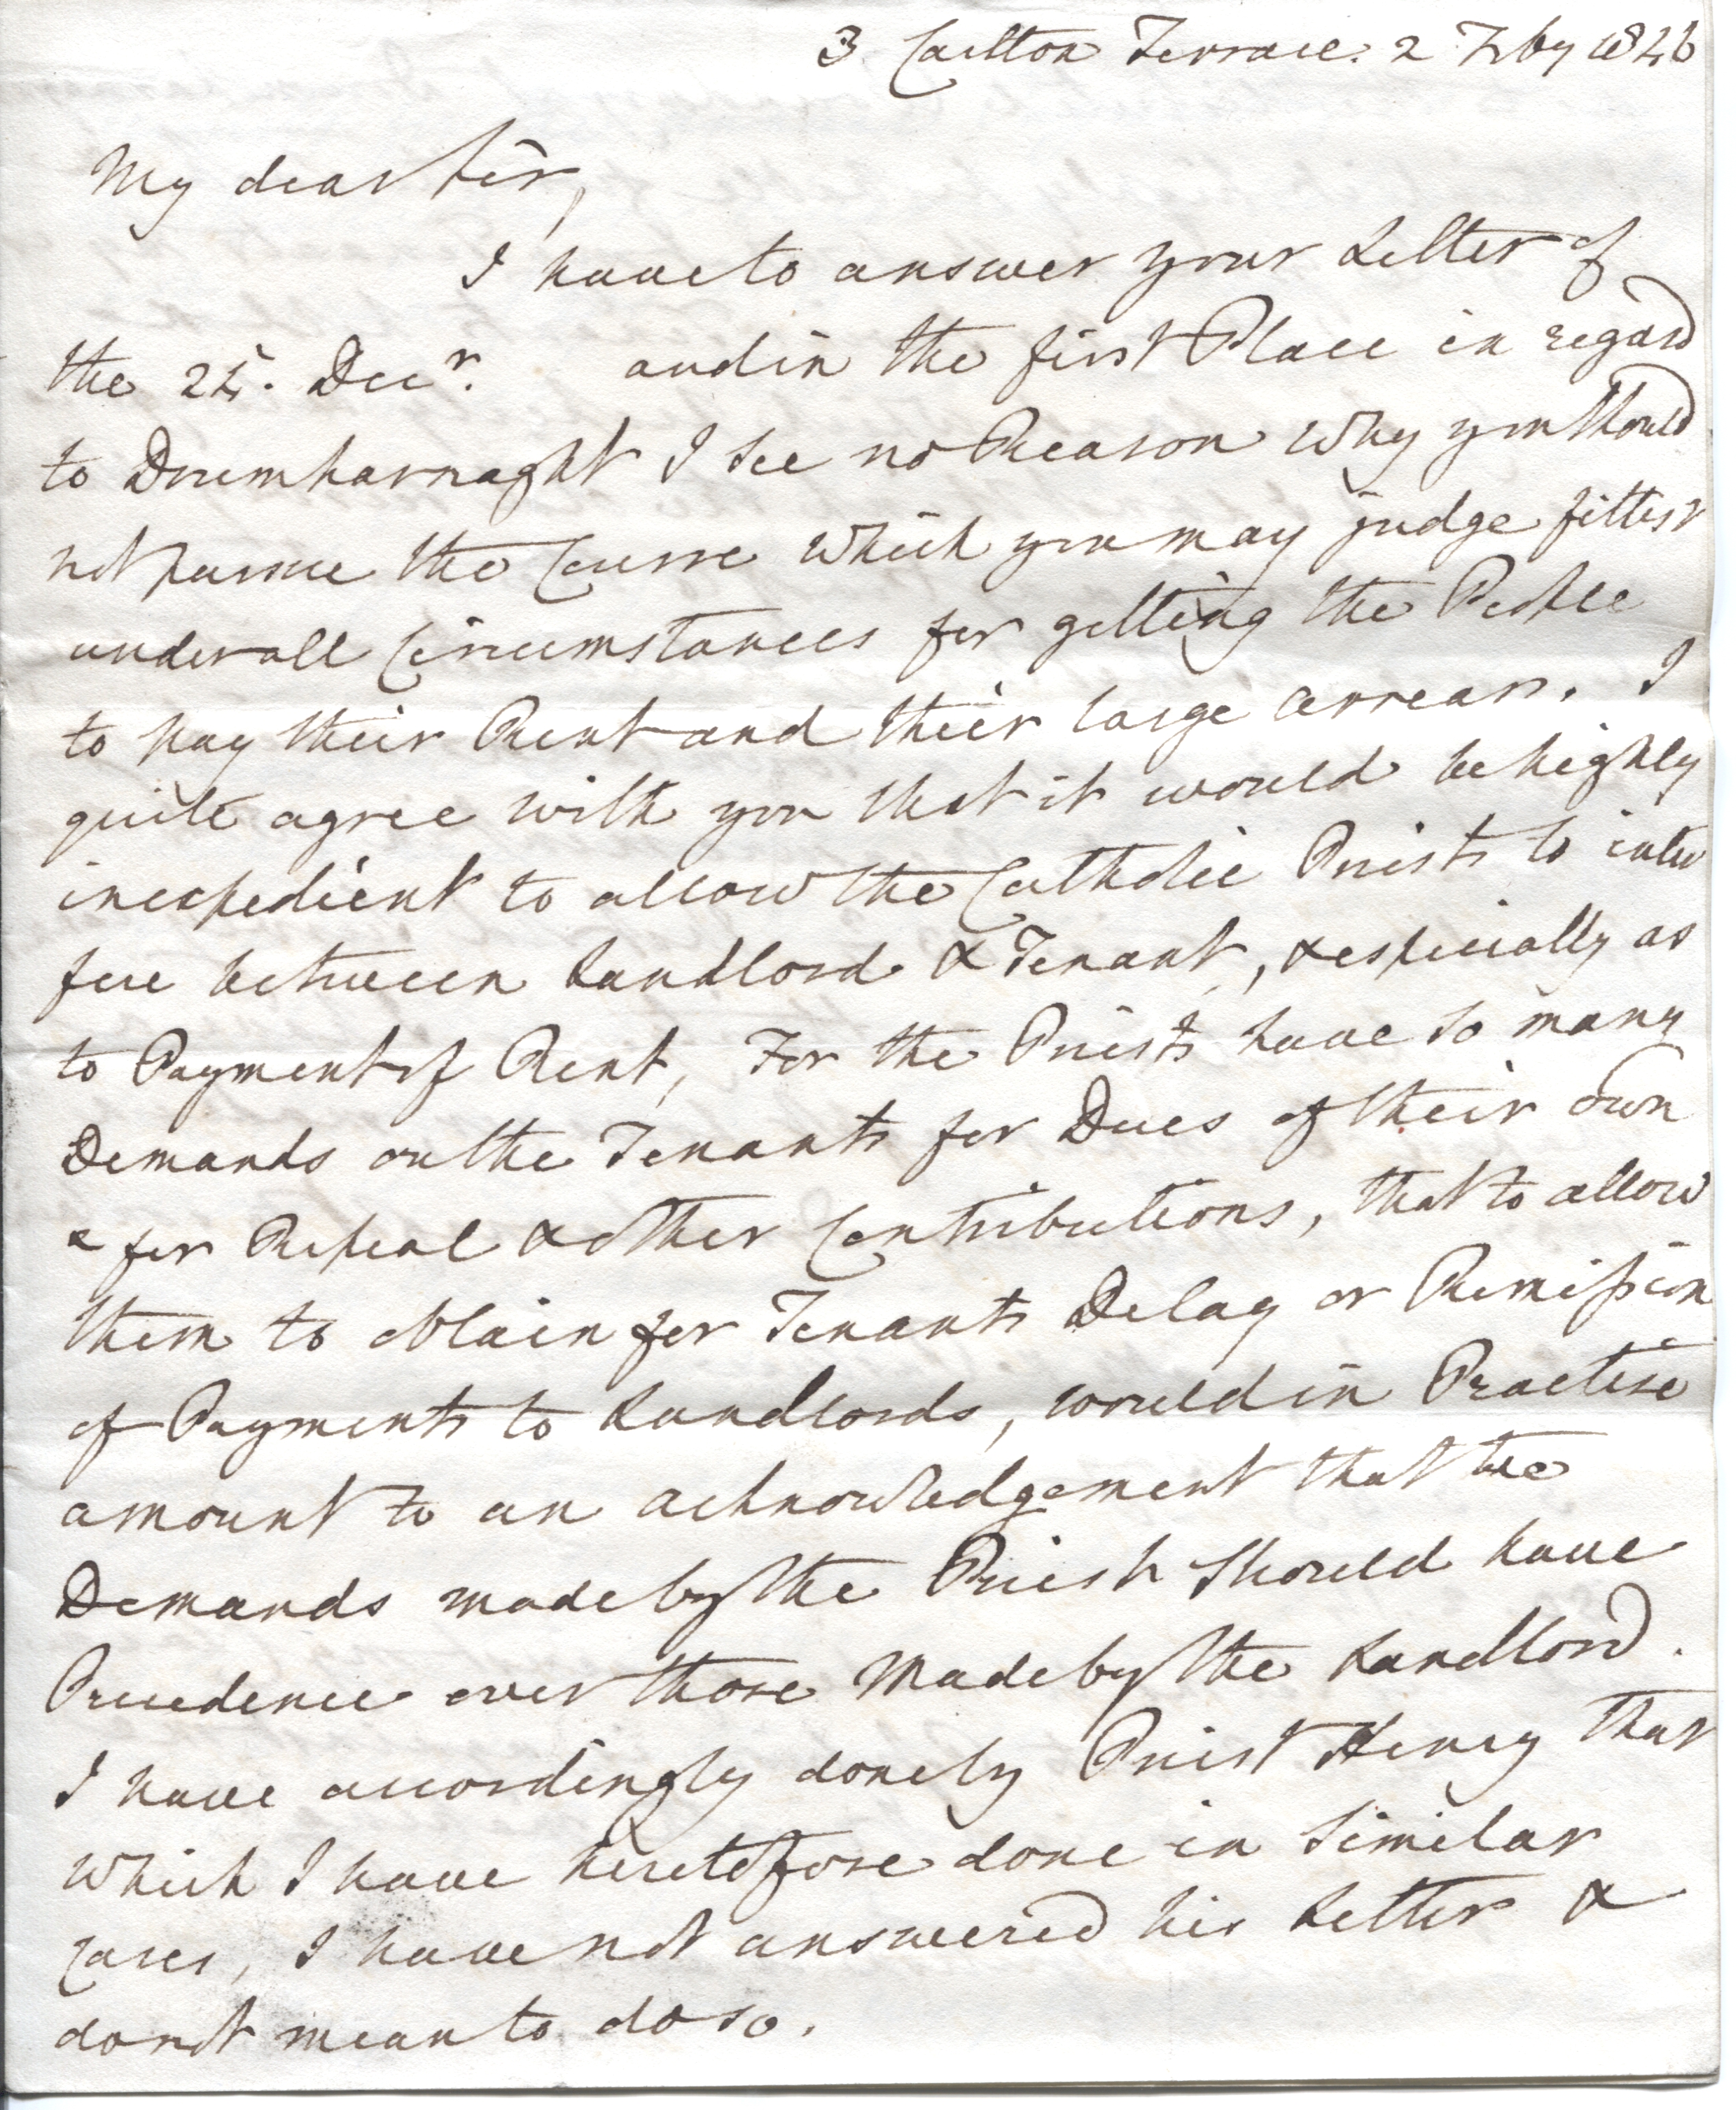 3 Carlton Terrace. 2 Feby 1846
My dear Sir,
I have to answer your Letter of
the 24. Decr. and in the first Place in regard
to Drumharnaght I see no Reason why you should
not pursue the Course which you may judge fittest
under all Circumstances for getting the People
to pay their Rent and their large arrears. I
quite agree with you that it would be highly
inexpedient to allow the Catholic Priests to inter
fere between Landlord & Tenant, & especially as
to Payment of Rent, For the Priests have so many
Demands on the Tenants for Dues of their own
& for Repeal & other Contributions, that to allow
them to obtain for Tenants Delay or Remission
of Payments to Landlords, would in Practise
amount to an acknowledgement that the
Demands made by the Priests should have
Precedence over those made by the Landlord.
I have accordingly done by Priest Henry that
which I have heretofore done in Similar
Cases, I have not answered his Letter &
do not mean to do so.